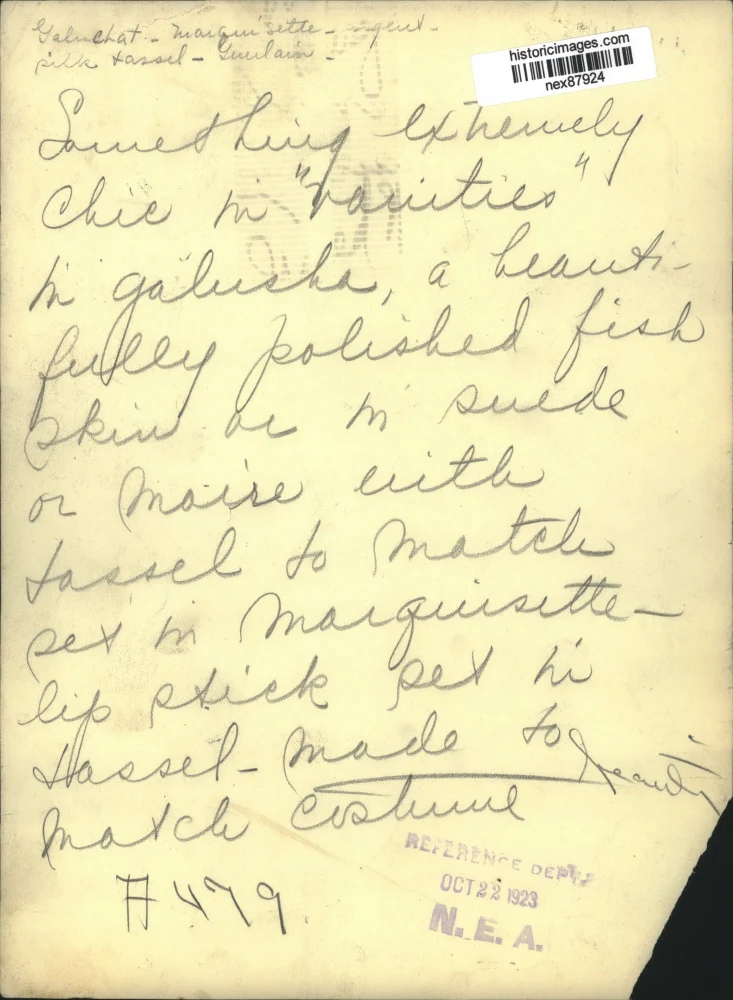 Galuchat - marquisette - argent -
silk tassel - Guerlain -
historicimages.com
nex87924
Something extremely
chic in "vanities"
in galusha, a beauti-
fully polished fish
skin or in suede
or moire with
tassel to match
set in marquisette -
lip stick set in
tassel - made to
match costume
Beauty
# 479
REFERENCE DEPT.
OCT 22 1923
N. E. A.